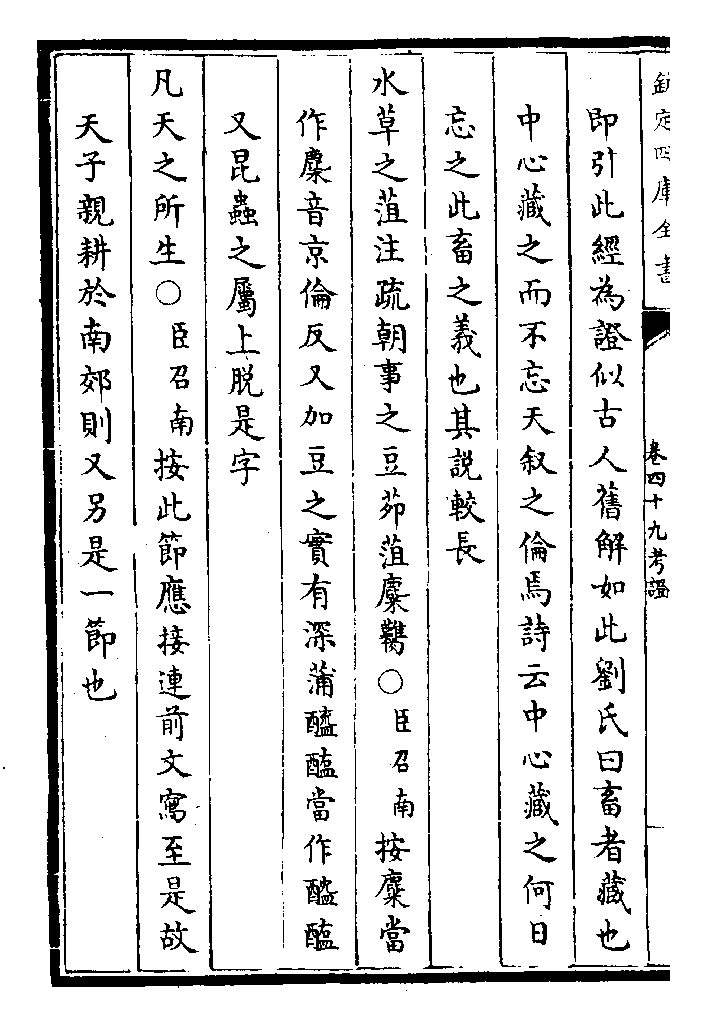 欽定四庫全書
卷四十九考證
即引此經為證似古人舊解如此劉氏曰畜者藏也
中心藏之而不忘天叙之倫焉詩云中心藏之何日
忘之此畜之義也其說較長
水草之菹注疏朝事之豆茆菹麋鷜○臣召南按麋當
作麇音京倫反又加豆之實有深蒲醓醢當作醓醢
又昆蟲之屬上脱是字
凡天之所生○臣召南按此節應接連前文寫至是故
天子親耕於南郊則又另是一節也